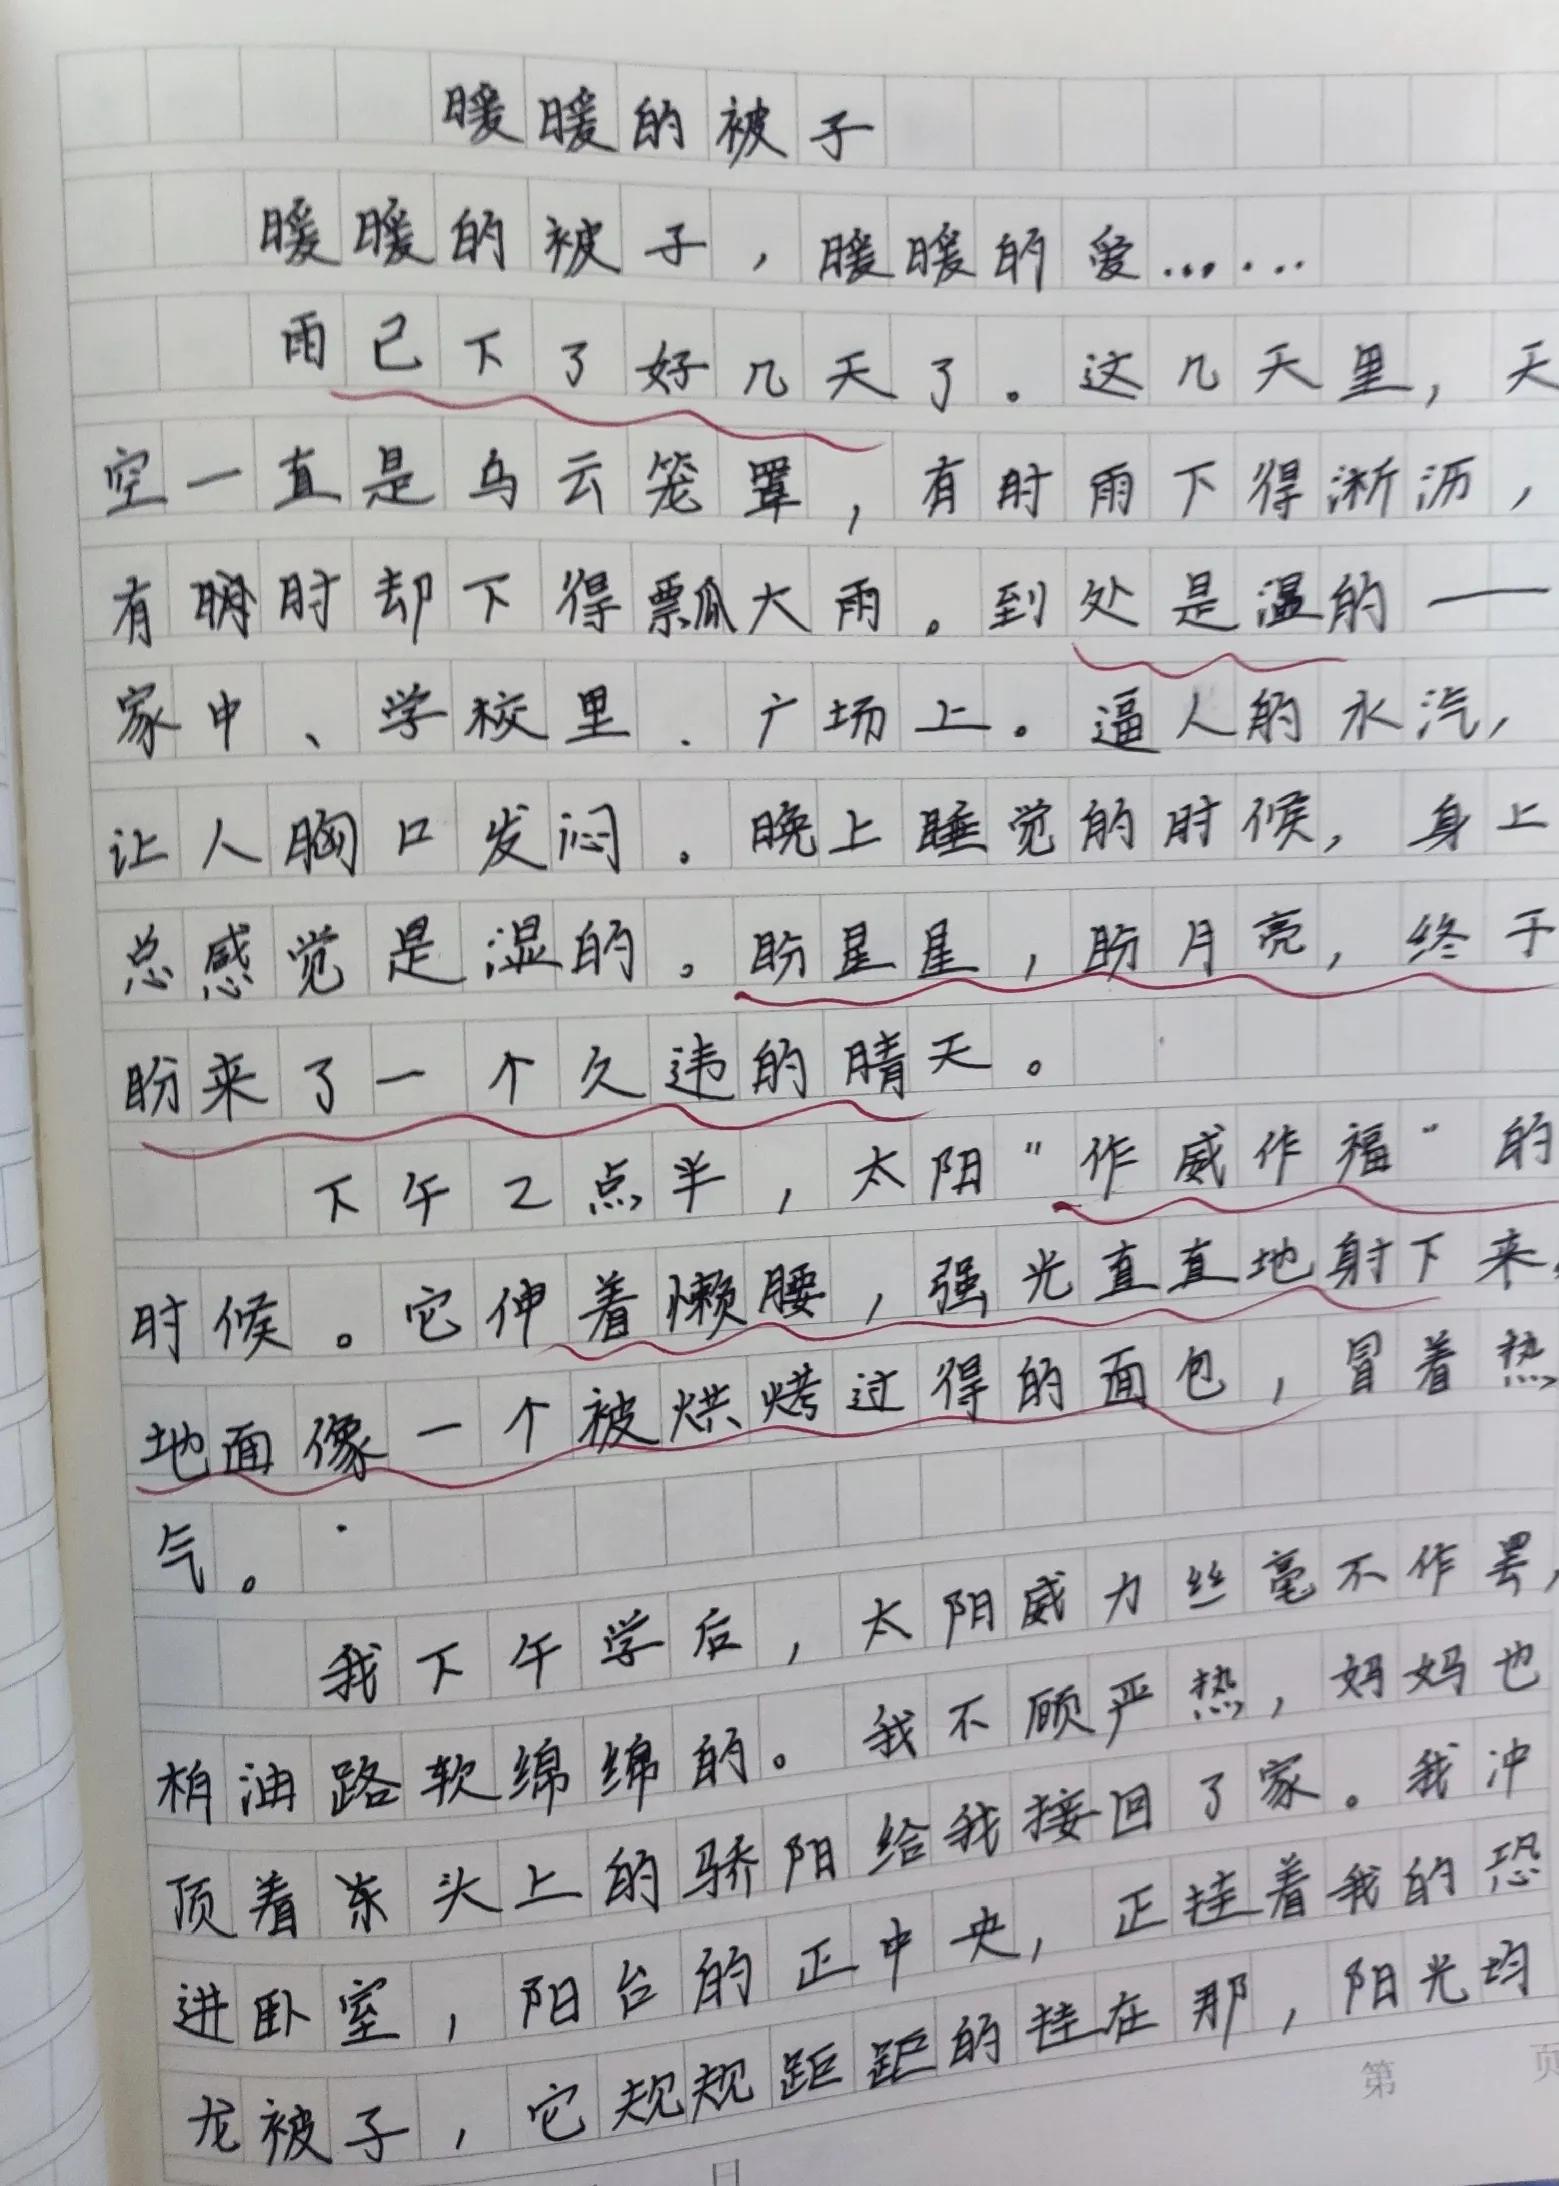 暖暖的被子
暖暖的被子，暖暖的爱……
雨已下了好几天了。这几天里，天
空一直是乌云笼罩，有时雨下得淅沥，
有时却下得瓢瓜大雨。到处是湿的——
家中、学校里、广场上。逼人的水汽，
让人胸口发闷。晚上睡觉的时候，身上
总感觉是湿的。盼星星，盼月亮，终于
盼来了一个久违的晴天。
下午2点半，太阳"作威作福"的
时候。它伸着懒腰，强光直直地射下来，
地面像一个被烘烤过得的面包，冒着热
气。
我下午学后，太阳威力丝毫不作罢，
柏油路软绵绵的。我不顾严热，妈妈也
顶着东头上的骄阳给我接回了家。我冲
进卧室，阳台的正中央，正挂着我的恐
龙被子，它规规距距的挂在那，阳光均
第 页
日